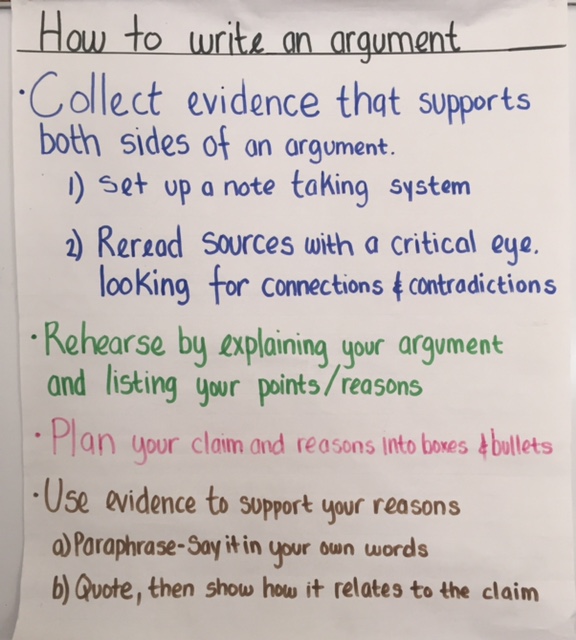 How to write an argument
• Collect evidence that supports
both sides of an argument.
1) Set up a note taking system
2) Reread sources with a critical eye.
looking for connections & contradictions
• Rehearse by explaining your argument
and listing your points/reasons
• Plan your claim and reasons into boxes & bullets
• Use evidence to support your reasons
a) Paraphrase - Say it in your own words
b) Quote, then show how it relates to the claim